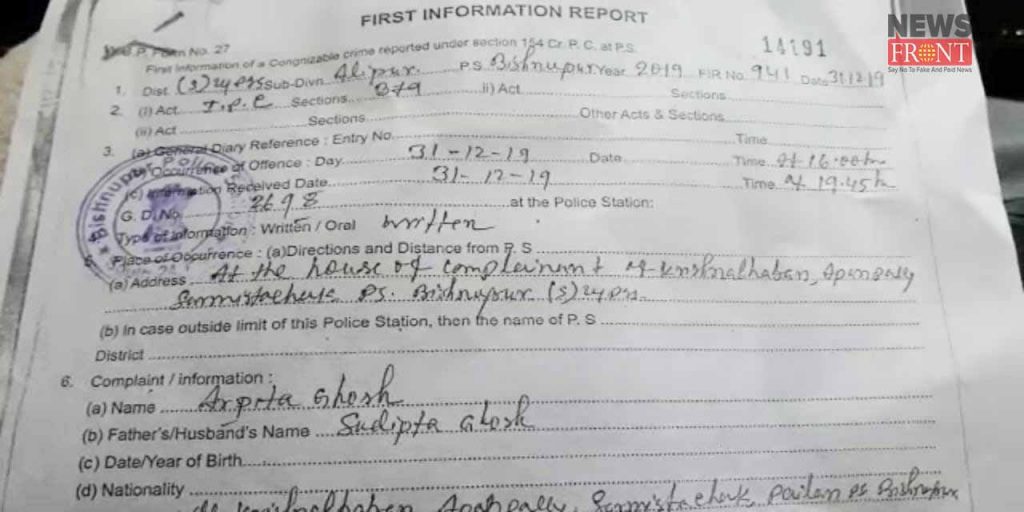 FIRST INFORMATION REPORT
NEWS
FRONT
Say No To Fake And Paid News
P. Form No. 27
14191
First Information of a Cognizable crime reported under section 154 Cr. P. C. at P.S.
1. Dist. (S) 24 Pgs Sub-Divn. Alipur P.S. Bishnupur Year 2019 FIR No. 941 Date 31.12.19
2. (i) Act I.P.C Sections 379 ii) Act Sections
(ii) Act Sections Other Acts & Sections
3. (a) General Diary Reference : Entry No. Time
Occurrence of Offence : Day 31-12-19 Date Time at 16.00 hrs
(c) Information Received Date 31-12-19 Time at 19.45 h
G. D. No. 2698 at the Police Station:
Type of Information : Written / Oral written
Place of Occurrence : (a) Directions and Distance from P. S
(a) Address At the house of complainant of
P.S. Bishnupur (S) 24 pgs.
(b) In case outside limit of this Police Station, then the name of P. S
District
6. Complaint / information :
(a) Name Arpita Ghosh
(b) Father's/Husband's Name Sudipta Ghosh
(c) Date/Year of Birth
(d) Nationality
Pailan PS Bishnupur
Bishnupur Police